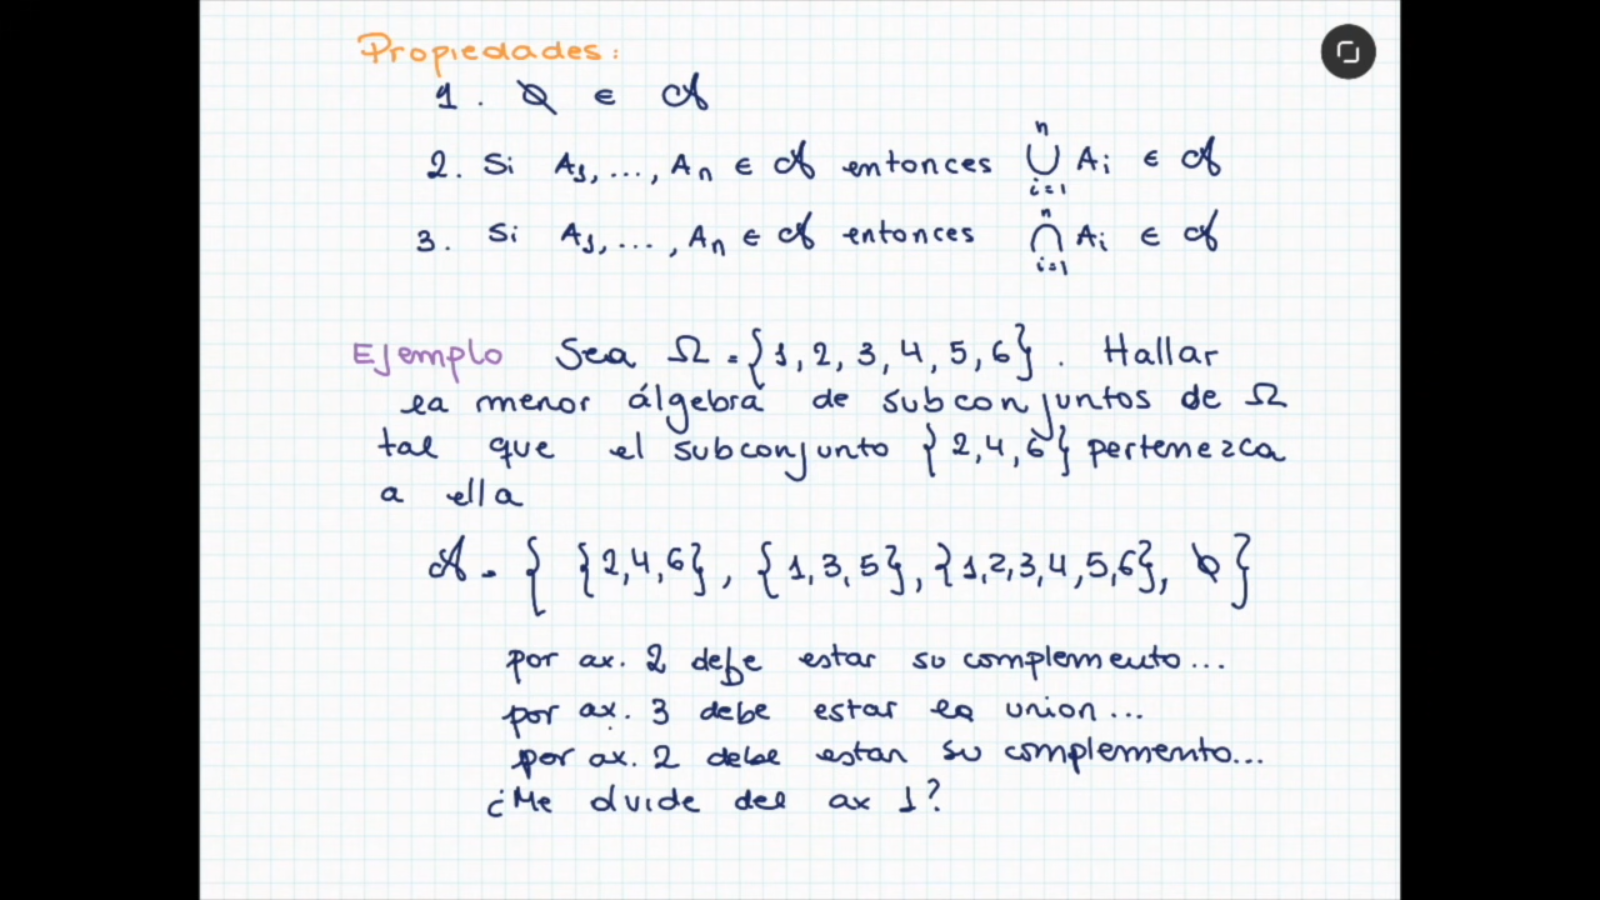 Propiedades:
1. ∅ ∈ 𝒜
2. Si A₁, ..., Aₙ ∈ 𝒜 entonces ⋃ᵢ₌₁ⁿ Aᵢ ∈ 𝒜
3. Si A₁, ..., Aₙ ∈ 𝒜 entonces ⋂ᵢ₌₁ⁿ Aᵢ ∈ 𝒜
Ejemplo Sea Ω = {1, 2, 3, 4, 5, 6}. Hallar
la menor álgebra de subconjuntos de Ω
tal que el subconjunto {2,4,6} pertenezca
a ella
𝒜 = { {2,4,6}, {1,3,5}, {1,2,3,4,5,6}, ∅ }
por ax. 2 debe estar su complemento...
por ax. 3 debe estar la union...
por ax. 2 debe estar su complemento...
¿Me olvide del ax 1?